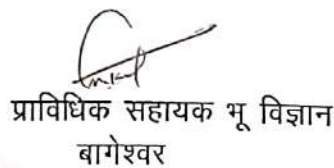 प्राविधिक सहायक भू विज्ञान
बागेश्वर